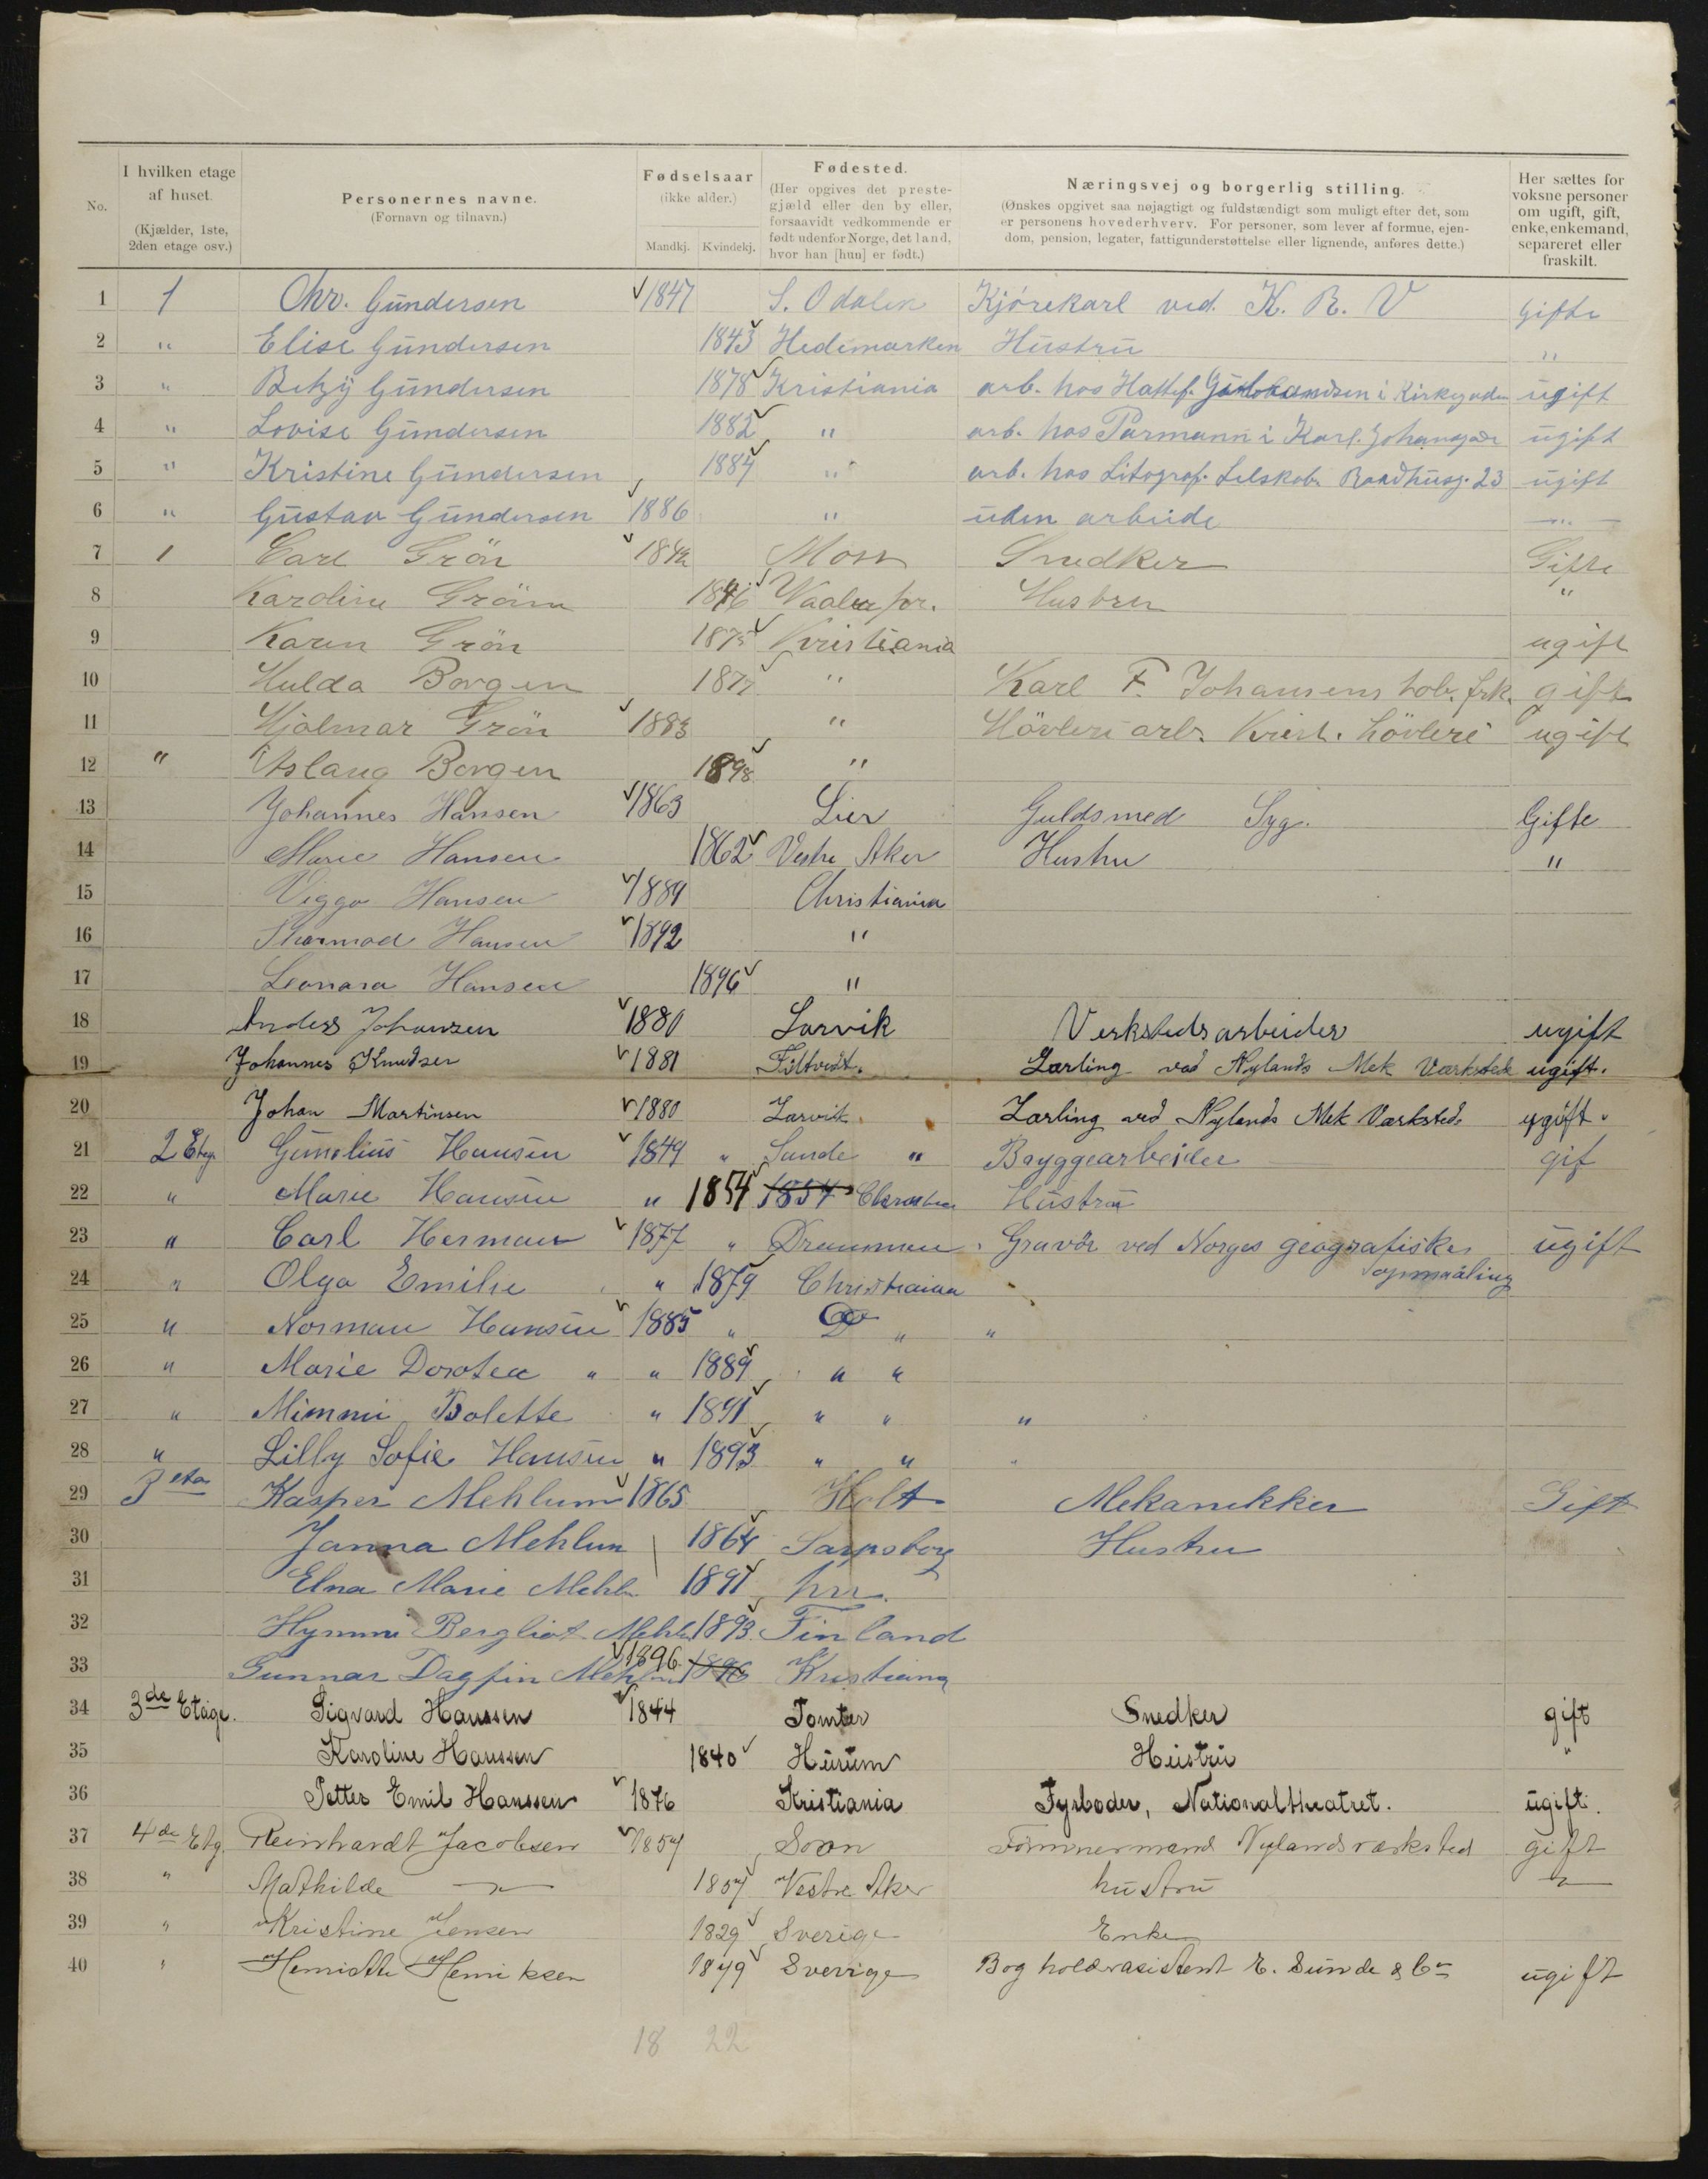 No.
I hvilken etage af huset.
(Kjælder, 1ste, 2den etage osv.)
Personernes navne.
(Fornavn og tilnavn.)
Fødselsaar
(ikke alder.)
Mandkj. Kvindekj.
Fødested.
(Her opgives det preste-
gjæld eller den by eller,
forsaavidt vedkommende er
født udenfor Norge, det land,
hvor han [hun] er født.)
Næringsvej og borgerlig stilling.
(Ønskes opgivet saa nøjagtigt og fuldstændigt som muligt efter det, som
er personens hovederhverv. For personer, som lever af formue, ejen-
dom, pension, legater, fattigunderstøttelse eller lignende, anføres dette.)
Her sættes for
voksne personer
om ugift, gift,
enke, enkemand,
separeret eller
fraskilt.
1 1 Chr. Gundersen 1847 S. Odalen Kjörekarl ved. K. R. V Gifte
2 " Elise Gundersen 1843 Hedemarken Hustru "
3 " Betzy Gundersen 1878 Kristiania arb. hos i Kirkegaden ugift
4 " Lovise Gundersen 1882 " arb. hos Parmann i Karl. Johansgade ugift
5 " Kristine Gundersen 1884 " arb. hos Litograf. Selskab Raadhusg. 23 ugift
6 " Gustav Gundersen 1886 " uden arbeide "
7 1 Carl Grön Moss Snedker Gifte
8 Karoline Grön 1846 Vaaler Hustru "
9 Karen Grön 1875 Kristiania ugift
10 Hulda Borgen 1877 " Karl F. Johansens tob. frk. gift
11 Hjalmar Grön 1883 " Hövleri arb. Krist. Hövleri ugift
12 " Aslaug Borgen 1898 "
13 Johannes Hansen 1863 Lier Guldsmed Syg. Gifte
14 Marie Hansen 1862 Vestre Aker Hustru "
15 Viggo Hansen 1889 Christiania
16 Thormod Hansen 1892 "
17 Leonora Hansen 1896 "
18 Anders Johansen 1880 Larvik Verkstedsarbeider ugift
19 Johannes Knudsen 1881 Filtvedt. Lærling ved Nylands Mek Værksted ugift.
20 Johan Martinsen 1880 Larvik Lærling ved Nylands Mek Værksted ugift.
21 2 Etg. Gunelius Hansen 1849 " Sande " Bryggearbeider gif
22 " Marie Hansen " 1854 1854 Hustru
23 " Carl Herman 1877 " Drammen Gravör ved Norges geografiske ugift
opmaaling
24 " Olga Emilie " 1879 Christiania
25 " Norman Hansen 1885 " Do " "
26 " Marie Dorotea " " 1889 " "
27 " Mimmi Bolette " 1891 " " "
28 " Lilly Sofie Hansen " 1893 " " "
29 3 eta Kasper Mehlum 1865 Holt Mekanikker Gift
30 Janna Mehlum 1864 Sarpsborg Hustru
31 Elna Marie Mehlm 1891
32 Hymmi Bergliot Mehlm 1893 Finland
33 Gunnar Dagfin Mehlum 1896 1896 Kristiania
34 3de Etage. Sigvard Hanssen 1844 Tomter Snedker gift
35 Karoline Hanssen 1840 Hurum Hustru "
36 Petter Emil Hanssen 1876 Kristiania Fyrböder, Nationaltheatret. ugift.
37 4de Etg Reinhardt Jacobsen 1857 Soon Tömmermand Nylandsværksted gift
38 " Mathilde " 1857 Vestre Aker hustru "
39 " Kristine Jensen 1829 Sverige Enke
40 " Henriette Henriksen 1849 Sverige Bogholderasistent E. Sunde & Co ugift
18 22